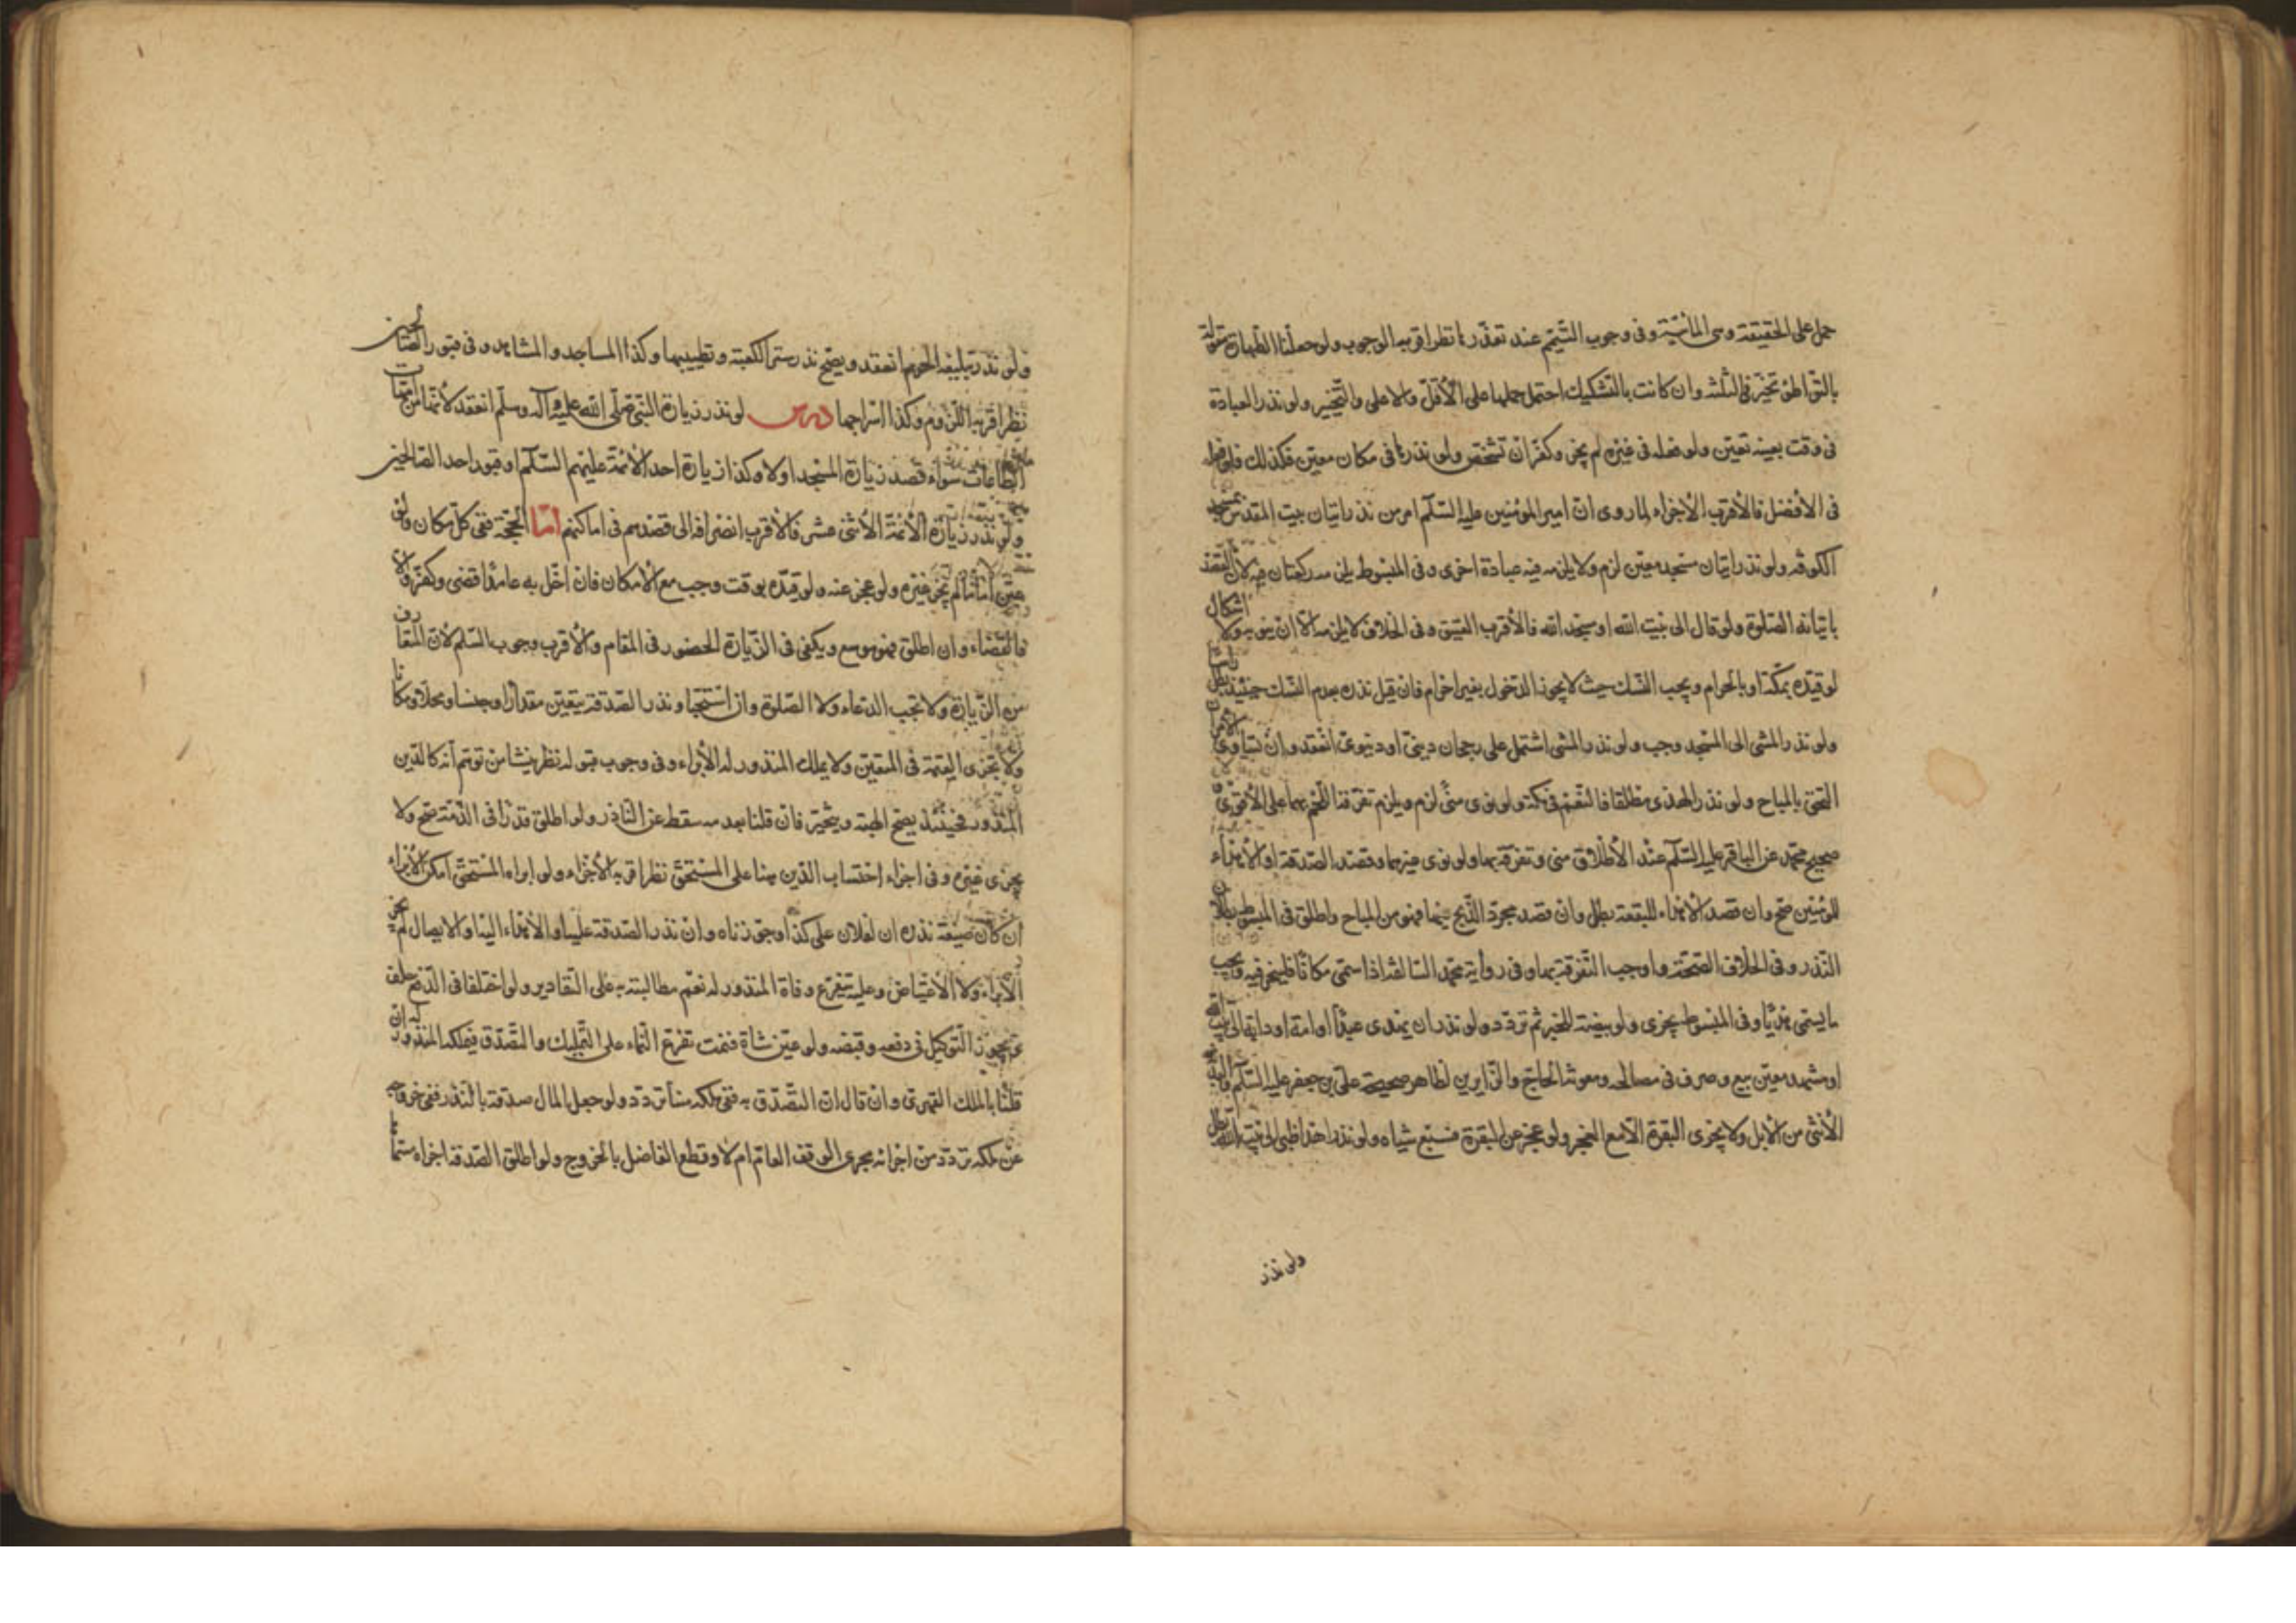 حمل على الحقيقة وهى المائية وفى وجوب التيمم عند تعذرها نظر اقربه الوجوب ولو جعلنا الطهارة مقولة
بالتواطئ تخير فى الثلثه وان كانت بالتشكيك احتمل حملها على الاقل والاعلى والتخيير ولو نذر العبادة
فى وقت بعينه تعين ولو فعله فى غيره لم يجز وكفر ان تشخص ولو نذرها فى مكان معين فكذلك فلو فعل
فى الأفضل فالأقرب الأجزاء لما روى ان امير المؤمنين عليه السلم امر من نذر اتيان بيت المقدس بمسجد
الكوفه ولو نذر اتيان مسجد معين لزم ولا يلزمه فيه عبادة اخرى وفى المبسوط يلزمه ركعتان فيه لان القصد
باتيانه الصلوة ولو قال الى بيت الله او بيت الله فالأقرب العتيق وفى الخلاف لا يلزمه الا ان ينويه ولا اشكال
لو قيده بمكة او بالحرام ويجب النسك حيث لا يجوز الدخول بغير احرام فان قيل نذره بعدم النسك حينئذ بطل
ولو نذر المشى الى المسجد وجب ولو نذر المشى اشتمل على رجحان دينى او دنيوى انعقد وان تساوى الامران
التحق بالمباح ولو نذر الهدى مطلقا فالنعم فى مكة ولو نوى منى لزم ويلزم تفرقة اللحم بهما على الأقوى
صحيح محمد عن الباقر عليه السلم عند الأطلاق منى وتفرقته بها ولو نوى غيرهما وقصد الصدقة او الأهداء
للمؤمنين صح وان قصد الاهداء للبقعة بطل وان قصد مجرد الذبح فيها فهو من المباح واطلق فى المبسوط بطلان
النذر وفى الخلاف الصحة واوجب التفرقة بها وفى رواية محمد السالفة اذا سمى مكانا فلينحر فيه ويجب
ما يسمى هديا وفى المبسوط يجزى ولو بيضة للخبر ثم تردد ولو نذر ان يهدى عبدا او امة او دابة الى بيت الله
او مشهد معين بيع وصرف فى مصالحه ومعونة الحاج والزايرين لظاهر صحيحة على بن جعفر عليه السلم والبدنه
الأنثى من الأبل ولا يجزى البقرة الا مع العجز ولو عجز عن البقرة فسبع شياه ولو نذر اهداء ظبى الى بيت الله بطل
ولو نذر
ولو نذر تبليغه الحرم انعقد ويصح نذر ستر الكعبة وتطييبها وكذا المساجد والمشاهد وفى قبور الصالحين
نظر اقربه اللزوم وكذا اسراجها درس لو نذر زيارة النبى صلى الله عليه وآله وسلم انعقد لأنها من مهمات
الطاعات سواء قصد زيارة المسجد اولا وكذا زيارة احد الأئمة عليهم السلم او قبور احد الصالحين
ولو نذر زيارة الأئمة الأثنى عشر فالأقرب انصرافه الى قصدهم فى اماكنهم اما الحجة ففى كل مكان ولو
عين اماما لم يجز غيره ولو عجز عنه ولو قيده بوقت وجب مع الأمكان فان اخل به عامدا قضى وكفر والا
فالقضاء وان اطلق فهو موسع ويكفى فى الزيارة الحضور فى المقام والأقرب وجوب السلم لأن المتعارف
من الزيارة ولا تجب الدعاء ولا الصلوة وان استحبا ونذر الصدقة يتعين مقدارا وجنسا ومحلا ومكانا
ولا تجزى القيمة فى المتعين ولا يملك المنذور له الأبراء وفى وجوب قبوله نظر ينشأ من توهم انه كالدين
المنذور فحينئذ يصح الهبة ويتخير فان قلنا بعدمه سقط عن الناذر ولو اطلق قدرا فى الذمة صح ولا
يجزى غيره وفى اجزاء احتساب الدين هنا على المستحق نظر اقربه الأجزاء ولو ابراه المستحق امكن الأبراء
ان كان صيغة نذره ان لفلان على كذا وجوزناه وان نذر الصدقة عليه او الأهداء اليه او الايصال لم يجز
الأبراء ولا الأعتياض وعليه يتفرع وفاة المنذور له نعم مطالبته به على التقادير ولو اختلفا فى الدفع حلف
ويجوز التوكيل فى دفعه وقبضه ولو عين شاة فنمت تفرع النماء على التمليك والتصدق فيملكه المنذور له ان
قلنا بالملك القهرى وان قال ان التصدق به ففى ملكه هنا تردد ولو جعل المال صدقة بالنذر ففى خروجه
عن ملكه تردد من اجرائه مجرى الوقف العام ام لا وقطع الفاضل بالخروج ولو اطلق الصدقة اجزاه مسماها